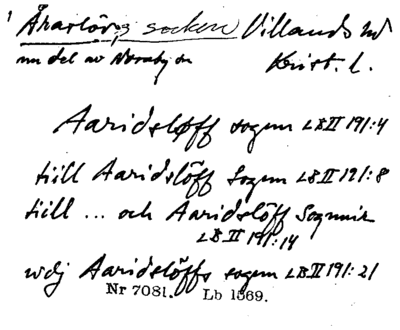 1 Åraslövs socken Villands hd
nu del av Norraby sn Krist. l.
Aaridsløff sogenn LB II 191:4
tiill Aaridslöff Sogenn LB II 191:8
tiill ... och Aaridslöff Sognnir
LB II 191:14
wdj Aaridslöffs sogenn LB II 191:21
Nr 7081. Lb 1569.